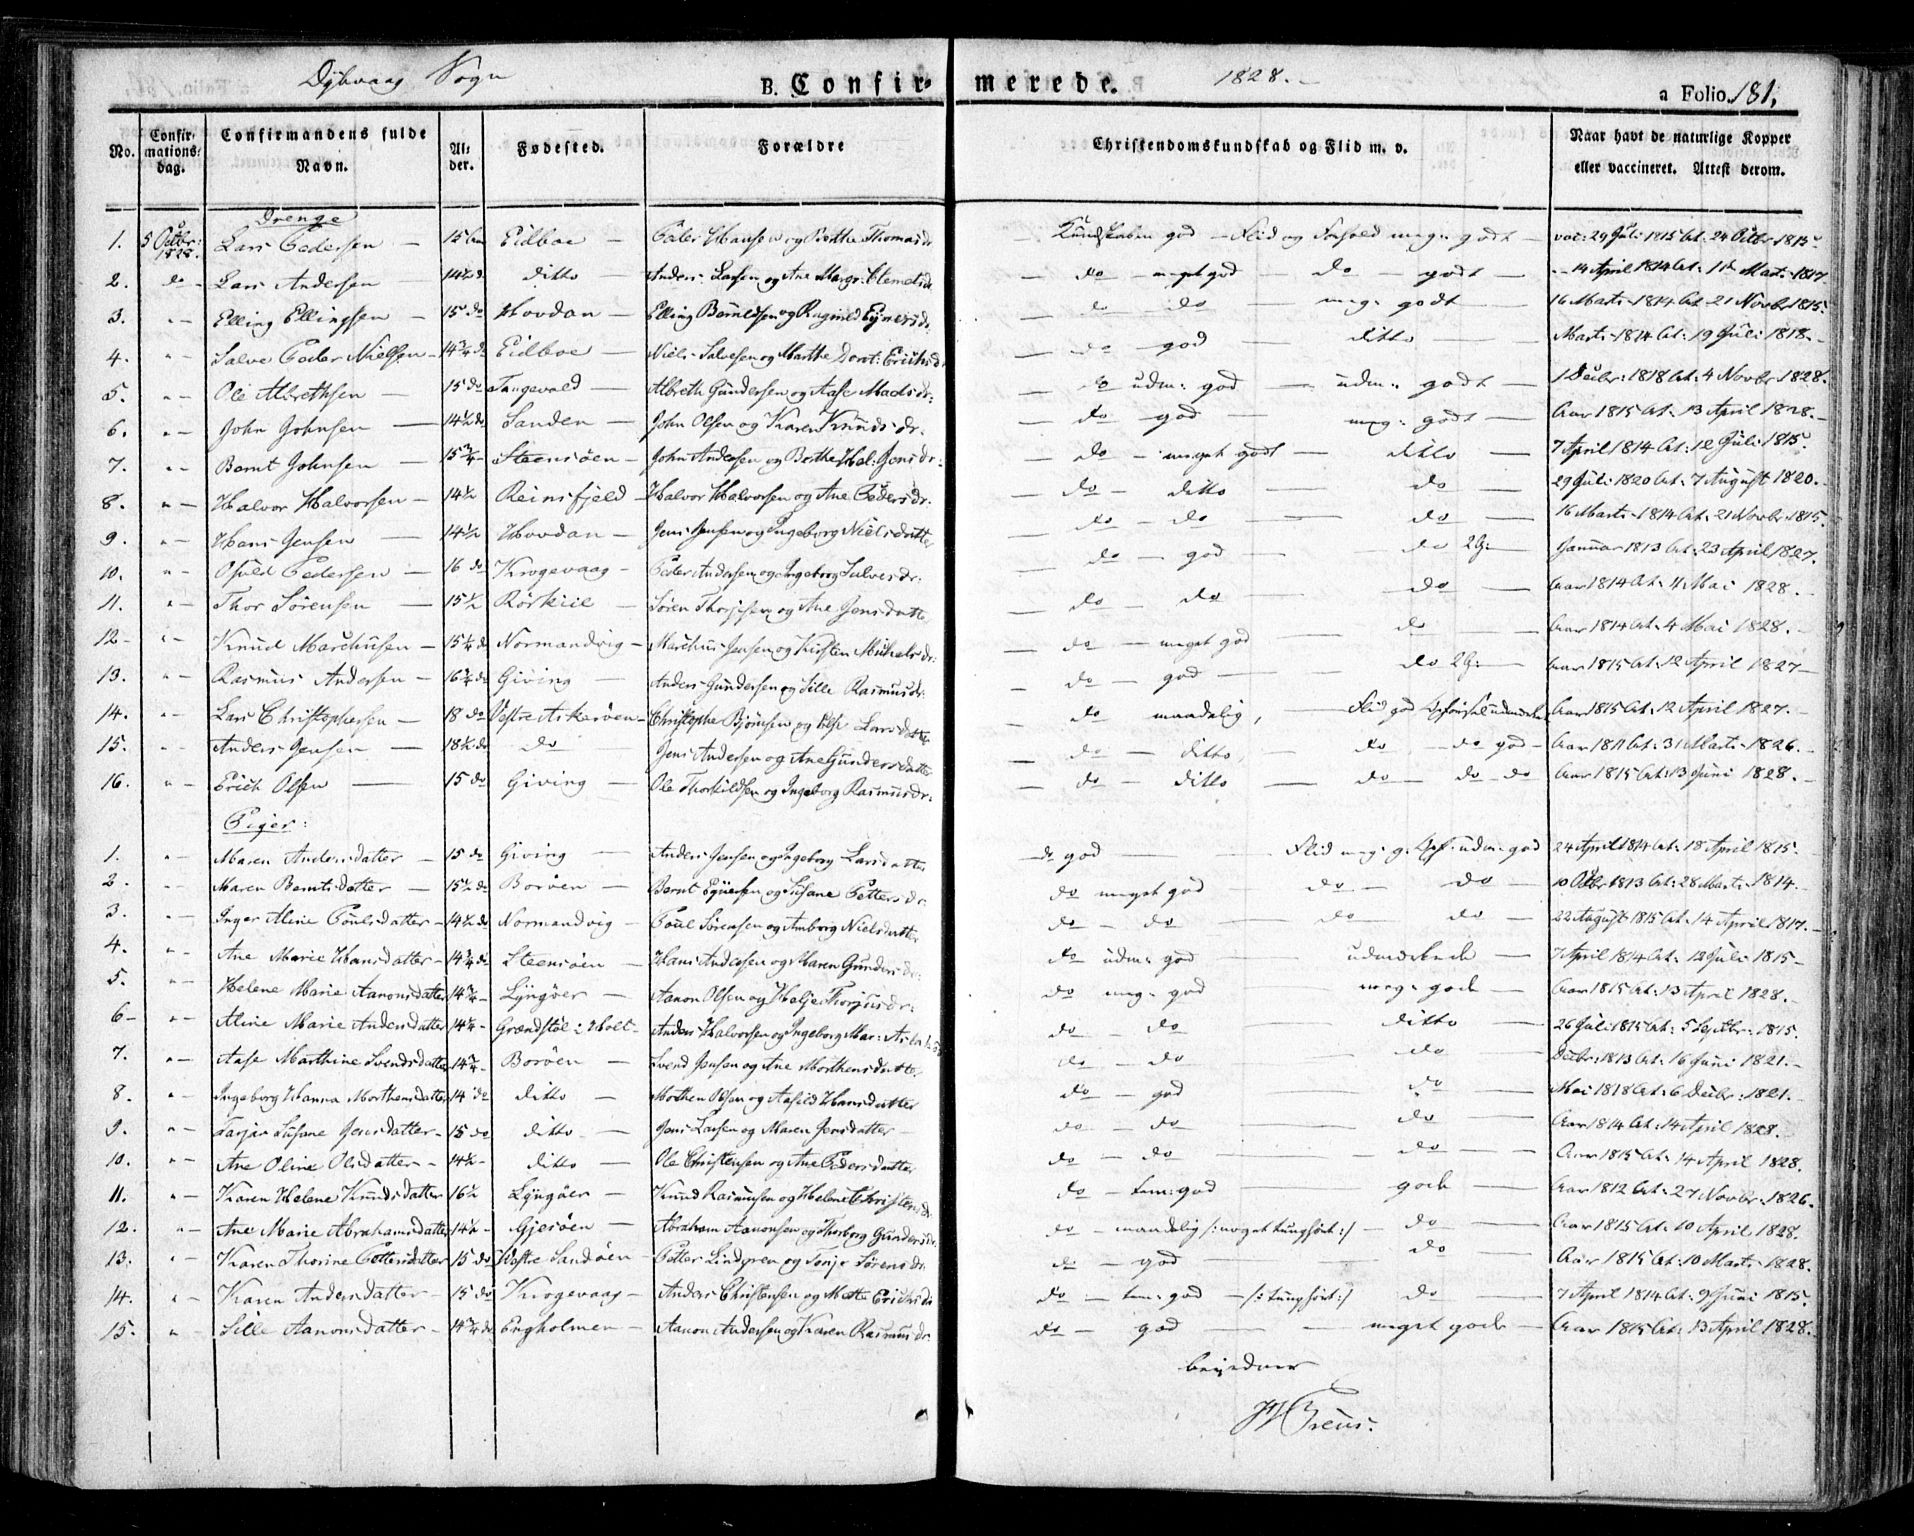 Dybvaag Sogn B. Confirmerede. 1828. a Folio 181.
No. Confirmations-dag. Confirmandens fulde Navn. Alder. Fødested. Forældre Christendomskundskab og Flid m. v. Naar havt de naturlige Kopper eller vaccineret. Attest derom.
Drenge
1. 5 Octbr: 1828. Lars Pedersen 15 Eidboe Peder Hansen og Berthe Thomasdr Kundskaben god Flid og Forhold meg: godt vac: 29 Juli 1815 At: 24 Octbr 1815
2. do Lars Andersen 14½ d ditto Anders Larsen og Ane Margr: Clemetsdr do meget god do godt 14 April 1814 At: Marts 1817
3. " Elling Ellingsen 15 do Hovdan Elling Berntsen og Ragnild do do meg: godt 16 Marts 1814 At: 21 Novbr 1815.
4. " Salve Peder Nielsen 14¾ d Eidboe Niels Salvesen og Marthe Dorot: Erichsdr do god ditto Marts 1814 At: 19 Juli 1818.
5. " Ole Albrethsen 15 do Tangevald Albreth Gundersen og Aase Madsdr: do udm: god udm: godt 1 Decbr: 1818 At: 4 Novbr 1828.
6. " John Johnsen 14½ do Sanden John Olsen og Karen Knudsdr. do god meg: godt Aar 1815 At: 13 April 1828.
7. " Bernt Johnsen 15¾ Steensøen John Andersen og Berthe Hel: Jensdr: do meget godt ditto 7 April 1814 At: 12 Juli 1815
8. " Halvor Halvorsen 14½ Reinsfjeld Halvor Halvorsen og Ane Pedersdr. do ditto do 29 Juli 1820 At: 7 August 1820.
9. " Hans Jensen 14½ Hovdan Jens Jensen og Ingeborg Nielsdatter do do do 16 Marts 1814 At: 21 Novbr 1815.
10. " Osuld Pedersen 16 do Krogevaag Peder Andersen og Ingeborg Salvesdr: do god do 2G: Januar 1813 At: 23 April 1827.
11. " Thor Sørensen 15½ Rørkiil Søren og Ane Jensdatter do do do Aar 1814 At: 4 Mai 1828.
12 " Knud Marchusen 15¼ do Normandvig Marchus Jensen og Kirsten Michelsdr: do meget god do Aar 1814 At: 4 Mai 1828.
13. " Rasmus Andersen 16¾ do Giving Anders Gundersen og Sille Rasmusdr: do god do 2G: Aar 1815 At: 12 April 1827
14. " Lars Christophersen 18 do Vestre Askerøen Christopher Bjørnsen og Else Larsdatter do maadelig, Flid god Aar 1815 At: 12 April 1827.
15. " Anders Jensen 18½ do do Jens Andersen og Ane Gundersdatter do ditto, do do god Aar 1811 At: 31 Marts 1826.
16. " Erich Olsen 15 do Giving Ole Thorkildsen og Ingeborg Rasmusdr: do ditto do do do Aar 1815 At: 13 Juni 1828.
Piger:
1. " Maren Andersdatter 15 do Giving Anders Jensen og Ingeborg Larsdatter do god Flid meg: g. Opf: udm: god 24 April 1814 At: 18 April 1815.
2. " Maren Berntsdatter 15½ do Borøen Bernt og Susane Pettersdr. do meget god do do 10 Octbr 1813 At: 28 Marts 1814.
3. " Inger Aline Poulsdatter 14½ do Normandvig Poul Sørensen og Amborg Nielsdatter do do do do 22 August 1815 At: 14 April 1817.
4. " Ane Marie Hansdatter 14¾ do Steensøen Hans Andersen og Maren Gundersdr: do udm: god udmærkede 7 April 1814 At: 12 Juli 1815
5. " Helene Marie Aanonsdatter 14¾ Lyngøer Aanon Olsen og Helje Thorjusdr: do meg: god meg: gode Aar 1815 At: 13 April 1828.
6 " Aline Marie Andersdatter 14¼ Grændstøl i Holt Anders Halvorsen og Ingeborg Mar: do do ditto 26 Juli 1815 At: 5 Septbr: 1815.
7. " Aase Marthine Svendsdatter 14¾ Borøen Svend Jensen og Ane Morthensdatter do do do Decbr: 1813 At: 16 Juni 1821.
8. " Ingeborg Hanna Morthensdatter 14 do ditto Morthen Olsen og Aasild Hansdatter do god do Mai 1818 At: 6 Decbr: 1821.
9. " Tarjær Susane Jensdatter 15 do ditto Jens Larsen og Maren Jensdatter do do do Aar 1814 At: 14 April 1828.
10. " Ane Oline Olsdatter 14½ ditto Ole Christensen og Ane Pedersdatter do do do Aar 1815 At: 14 April 1828.
11. " Karen Helene Knudsdatter 16½ Lyngøer Knud Rasmusen og Helene Christensdr. do tem: god gode Aar 1812 At: 27 Novbr. 1826.
12. " Ane Marie Abrahamsdatter 14½ Gjesøen Abraham Aanonsen og Thorborg Gundersdr. do maadelig /: noget tunghørt :/ do Aar 1815 At: 10 April 1828.
13. " Karen Thorine Pettersdatter 15 do Westre Sandøen Petter Lindgren og Tonje Sørensdr. do god do Aar 1815 At: 10 Marts 1828.
14. " Karen Andersdatter 15 do Krogevaag Anders Christensen og Mette Erichsdr do tem: god /: tunghørt :/ do 7 April 1814 At: 9 Juni 1815.
15. " Sille Aanonsdatter 14¾ do Engholmen Aanon Andersen og Karen Rasmusdr. do god meget gode Aar 1815 At: 13 April 1828.
bevidner